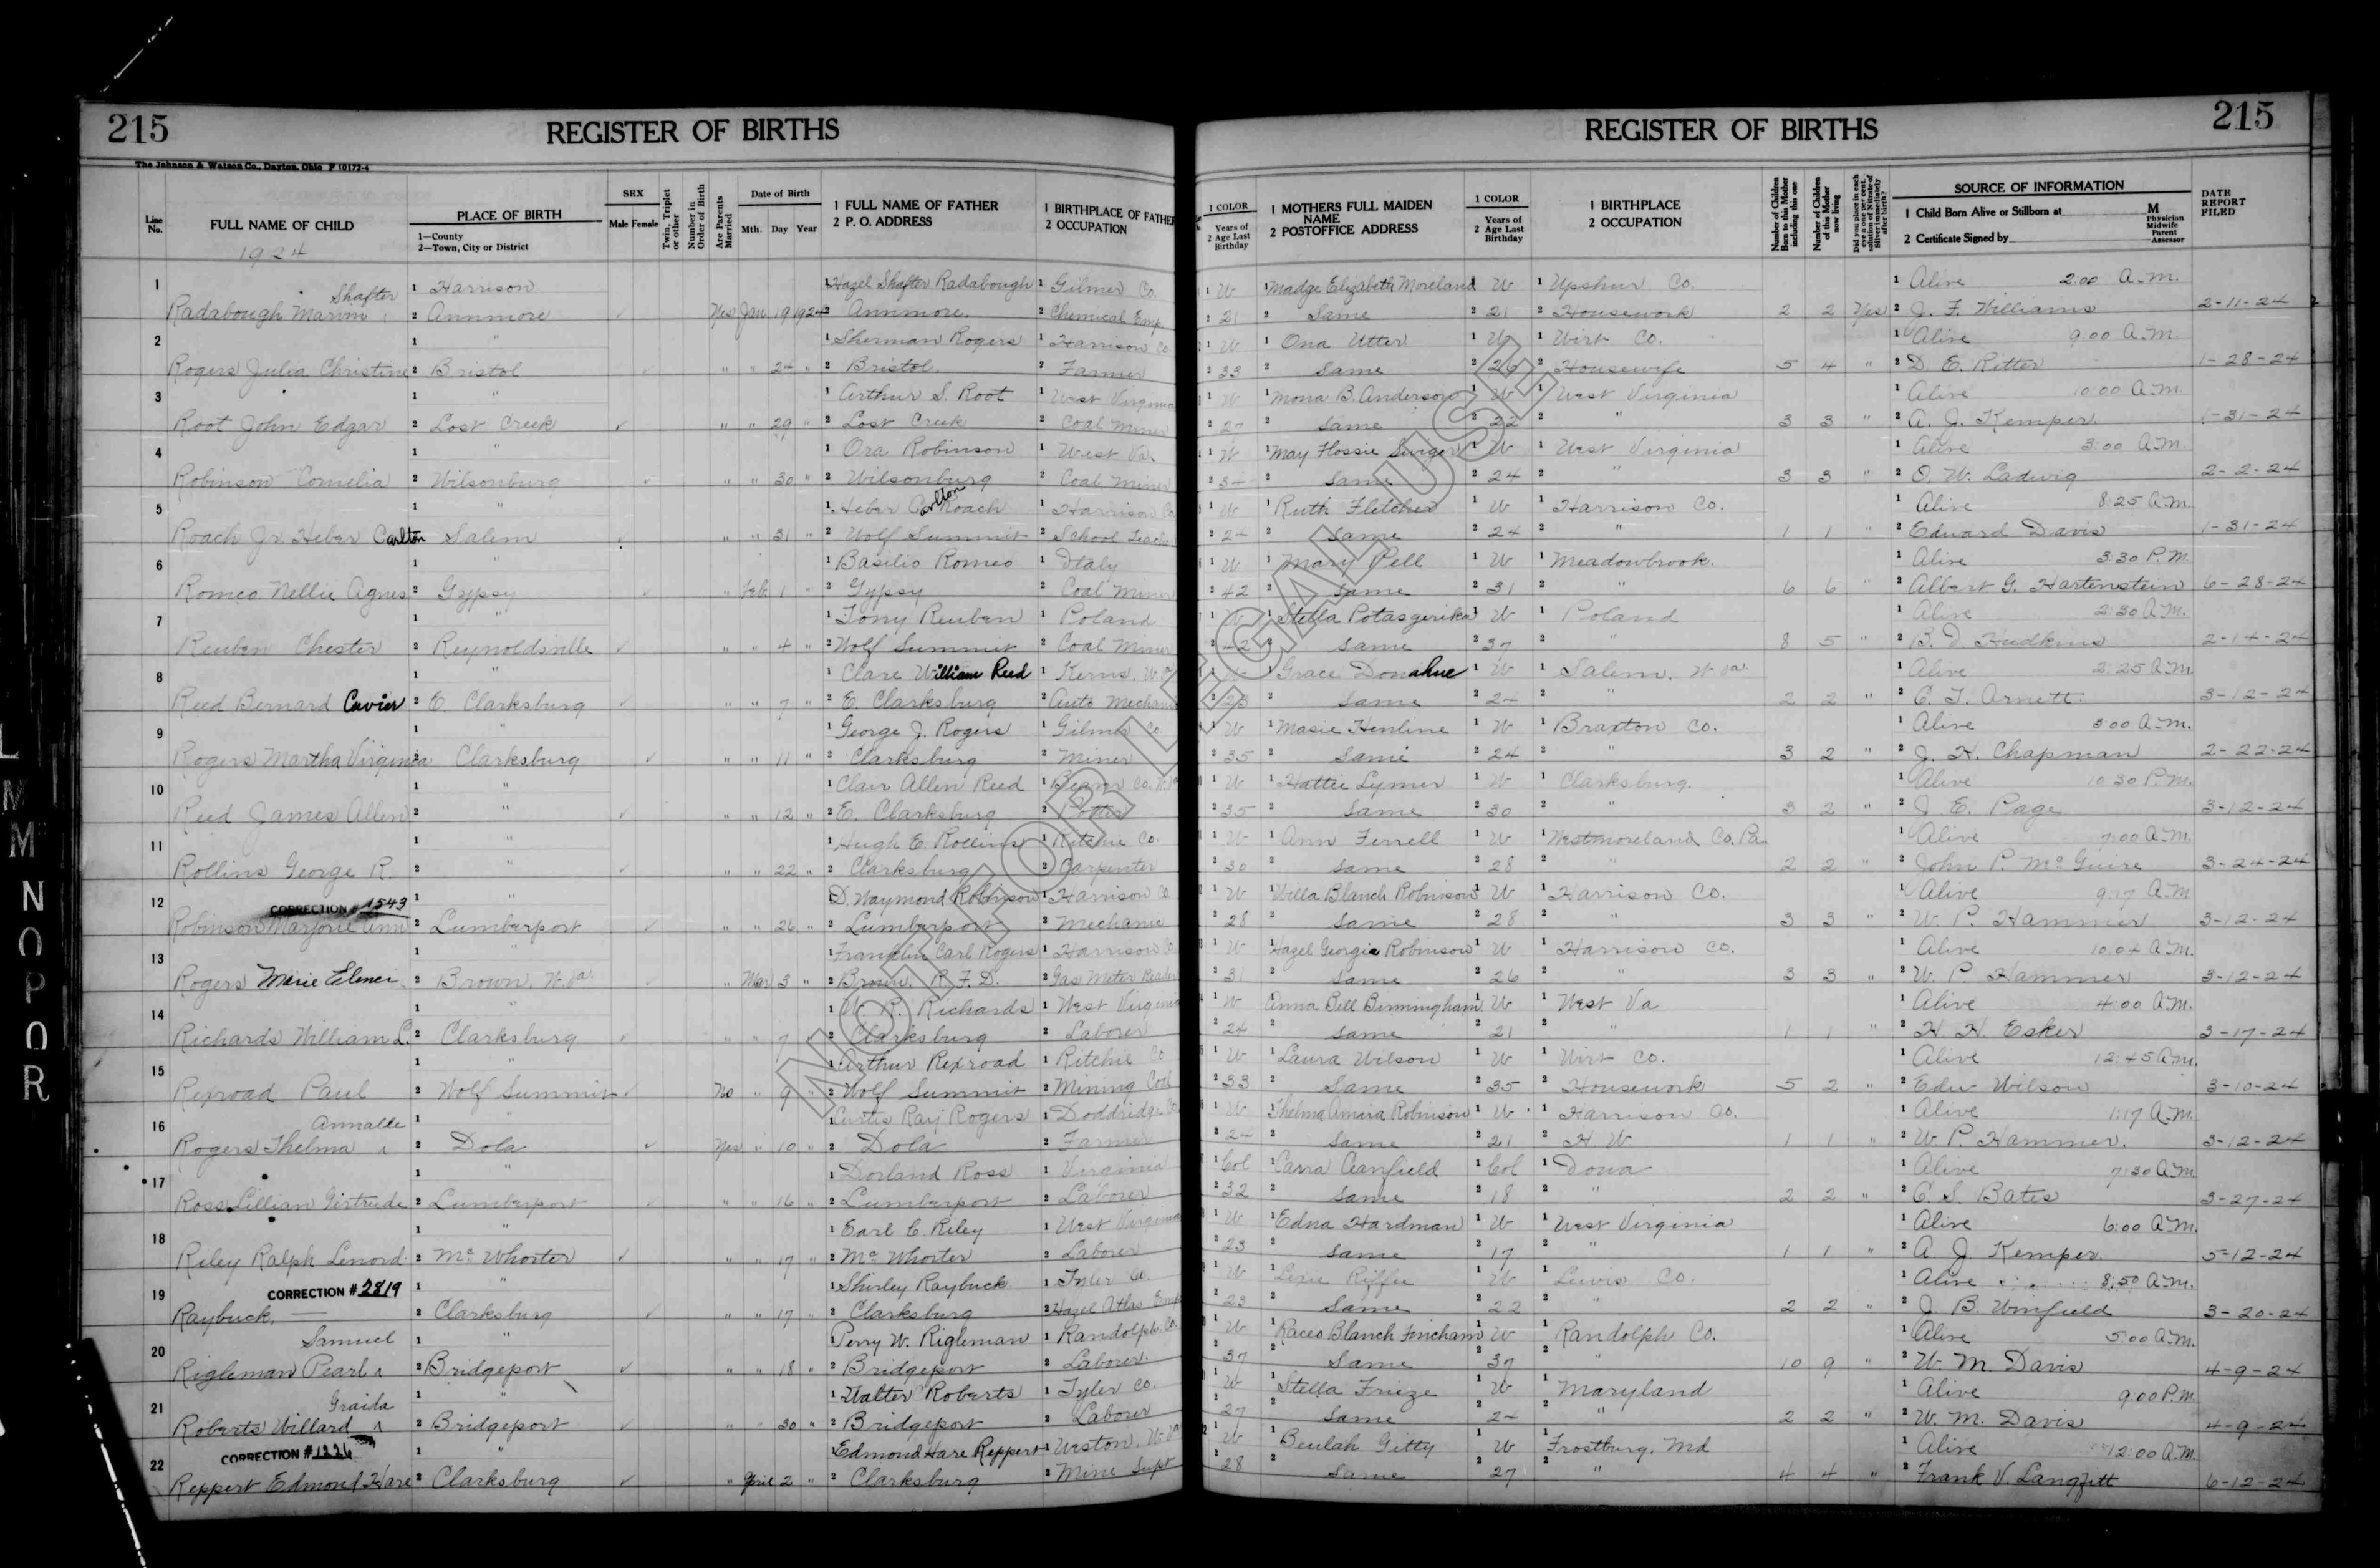 215 REGISTER OF BIRTHS REGISTER OF BIRTHS 215
The Johnson & Watson Co., Dayton, Ohio F 10172-4
Line No. FULL NAME OF CHILD PLACE OF BIRTH 1—County 2—Town, City or District SEX Male Female Twin, Triplet or other Number in Order of Birth Are Parents Married Date of Birth Mth. Day Year 1 FULL NAME OF FATHER 2 P. O. ADDRESS 1 BIRTHPLACE OF FATHER 2 OCCUPATION 1 COLOR 2 Years of Age Last Birthday 1 MOTHERS FULL MAIDEN NAME 2 POSTOFFICE ADDRESS 1 COLOR 2 Years of Age Last Birthday 1 BIRTHPLACE 2 OCCUPATION Number of Children Born to this Mother including this one Number of Children of this Mother now living SOURCE OF INFORMATION 1 Child Born Alive or Stillborn at M 2 Certificate Signed by Physician Midwife Parent Assessor DATE REPORT FILED
1924
1 Shafter 1 Harrison 1 Hazel Shafter Radabough 1 Gilmer Co. 1 W 1 Madge Elizabeth Moreland 1 W 1 Upshur Co. 1 Alive 2:00 A.M.
Radabough Marvin 2 Annmore Yes Jan 19 1924 2 Annmore. 2 Chemical Emp. 2 21 2 Same 2 21 2 Housework 2 2 Yes 2 J. F. Williams 2-11-24
2 1 " 1 Sherman Rogers 1 Harrison Co 1 W 1 Ona Utter 1 W 1 Wirt Co. 1 Alive 9:00 A.M.
Rogers Julia Christine 2 Bristol " " 24 " 2 Bristol. 2 Farmer 2 33 2 Same 2 26 2 Housewife 5 4 " 2 D. E. Ritter 1-28-24
3 1 " 1 Arthur S. Root 1 West Virginia 1 W 1 Mona B. Anderson 1 W 1 West Virginia 1 Alive 10:00 A.M.
Root John Edgar 2 Lost Creek " " 29 " 2 Lost Creek 2 Coal Miner 2 27 2 Same 2 22 2 " 3 3 " 2 A. J. Kemper. 1-31-24
4 1 " 1 Ora Robinson 1 West Va. 1 W 1 May Flossie Swiger 1 W 1 West Virginia 1 Alive 3:00 A.M.
Robinson Cornelia 2 Wilsonburg " " 30 " 2 Wilsonburg 2 Coal Miner 2 34 2 Same 2 24 2 " 3 3 " 2 O. W. Ladwig 2-2-24
5 1 " 1 Heber Carlton Roach 1 Harrison Co 1 W 1 Ruth Fletcher 1 W 1 Harrison Co. 1 Alive 8:25 A.M.
Roach Jr. Heber Carlton Salem " " 31 " 2 Wolf Summit 2 School Teacher 2 24 2 Same 2 24 2 " 1 1 " 2 Edward Davis 1-31-24
6 1 " 1 Basilio Romeo 1 Italy 1 W 1 Mary Pell 1 W 1 Meadowbrook. 1 Alive 3:30 P.M.
Romeo Nellie Agnes 2 Gypsy " Feb. 1 " 2 Gypsy 2 Coal Miner 2 42 2 Same 2 31 2 " 6 6 " 2 Albert G. Hartenstein 6-28-24
7 1 " 1 Tony Reuben 1 Poland 1 W 1 Stella Potasgerika 1 W 1 Poland 1 Alive 2:30 A.M.
Reuben Chester 2 Reynoldsville " " 4 " 2 Wolf Summit 2 Coal Miner 2 42 2 Same 2 37 2 " 8 5 " 2 B. D. Hudkins 2-14-24
8 1 " 1 Clare William Reed 1 Kerns, W. Va 1 W 1 Grace Donahue 1 W 1 Salem, W. Va. 1 Alive 2:25 A.M.
Reed Bernard Cavier 2 E. Clarksburg " " 7 " 2 E. Clarksburg 2 Auto Mechanic 2 23 2 Same 2 24 2 " 2 2 " 2 C. T. Arnett. 3-12-24
9 1 " 1 George J. Rogers 1 Gilmer Co. 1 W 1 Masie Henline 1 W 1 Braxton Co. 1 Alive 8:00 A.M.
Rogers Martha Virginia 2 Clarksburg " " 11 " 2 Clarksburg 2 Miner 2 35 2 Same 2 24 2 " 3 2 " 2 J. H. Chapman 2-22-24
10 1 " 1 Clair Allen Reed 1 W 1 Hattie Lymer 1 W 1 Clarksburg. 1 Alive 10 30 P.M.
Reed James Allen 2 " " " 12 " 2 E. Clarksburg 2 35 2 Same 2 30 2 " 3 2 " 2 J E. Page 3-12-24
11 1 " 1 Hugh E. Rollins 1 Ritchie Co. 1 W 1 Ann Ferrell 1 W 1 Westmoreland Co. Pa. 1 Alive 7:00 A.M.
Rollins George R. 2 " " " 22 " 2 Clarksburg 2 Carpenter 2 30 2 Same 2 28 2 " 2 2 " 2 John P. McGuire 3-24-24
12 CORRECTION # 1543 1 " D. Waymond Robinson 1 Harrison Co 1 W 1 Willa Blanch Robinson 1 W 1 Harrison Co. 1 Alive 9:17 A.M
Robinson Marjorie Ann 2 Lumberport " " 26 " 2 Lumberport 2 Mechanic 2 28 2 Same 2 28 2 " 3 3 " 2 W. P. Hammer 3-12-24
13 1 " 1 Franklin Carl Rogers 1 Harrison Co 1 W 1 Hazel Georgia Robinson 1 W 1 Harrison Co. 1 Alive 10:04 A.M.
Rogers Marie 2 Brown, W. Va. " Mar 3 " 2 Brown, R. F. D. 2 Gas Meter Reader 2 31 2 Same 2 26 2 " 3 3 " 2 W. P. Hammer 3-12-24
14 1 " 1 W. R. Richards 1 West Virginia 1 W Anna Bell Birmingham 1 W 1 West Va 1 Alive 4:00 A.M.
Richards William L. 2 Clarksburg " " 7 " 2 Clarksburg 2 Laborer 2 24 2 Same 2 21 2 " 1 1 " 2 H. H. Esker 3-17-24
15 1 " 1 Arthur Rexroad 1 Ritchie Co 1 W 1 Laura Wilson 1 W 1 Wirt Co. 1 Alive 12:45 A.M.
Rexroad Paul 2 Wolf Summit No " 9 " 2 Wolf Summit 2 Mining Coal 2 33 2 Same 2 35 2 Housework 5 2 " 2 Edw Wilson 3-10-24
16 Annalee 1 " 1 Curtis Ray Rogers 1 Doddridge Co 1 W 1 Thelma Robinson 1 W 1 Harrison Co. 1 Alive 1:17 A.M.
Rogers Thelma 2 Dola Yes " 10 " 2 Dola 2 Farmer 2 24 2 Same 2 21 2 H W 1 1 " 2 W. P. Hammer. 3-12-24
17 1 " 1 Dorland Ross 1 Virginia 1 Col 1 Carra Canfield 1 Col 1 Iowa 1 Alive 7:30 A.M
Ross Lillian Girtrude 2 Lumberport " " 16 " 2 Lumberport 2 Laborer 2 32 2 Same 2 18 2 " 2 2 " 2 C. S. Bates 3-27-24
18 1 " 1 Earl C. Riley 1 West Virginia 1 W 1 Edna Hardman 1 W 1 West Virginia 1 Alive 6:00 A.M.
Riley Ralph Lenord. 2 McWhorter " " 17 " 2 McWhorter 2 Laborer 2 23 2 Same 2 17 2 " 1 1 " 2 A. J. Kemper. 5-12-24
19 CORRECTION # 2819 1 " 1 Shirley Raybuck 1 Tyler Co. 1 W 1 Lexie Riffle 1 W 1 Lewis Co. 1 Alive 8:50 A.M.
Raybuck, 2 Clarksburg " " 17 " 2 Clarksburg 2 Hazel Atlas Emp 2 23 2 Same 2 22 2 " 2 2 " 2 J. B. Winfield 3-20-24
20 Samuel 1 " 1 Perry W. Rigleman 1 Randolph Co. 1 W 1 Blanch Fincham 1 W 1 Randolph Co. 1 Alive 5:00 A.M.
Rigleman Pearl 2 Bridgeport " " 18 " 2 Bridgeport 2 Laborer. 2 37 2 Same 2 37 2 " 10 9 " 2 W. M. Davis 4-9-24
21 Graida 1 " 1 Walter Roberts 1 Tyler Co. 1 W 1 Stella Frieze 1 W 1 Maryland 1 Alive 9:00 P.M.
Roberts Willard 2 Bridgeport " " 30 " 2 Bridgeport 2 Laborer 2 27 2 Same 2 24 2 " 2 2 " 2 W. M. Davis 4-9-24
22 CORRECTION # 1226 1 " Edmond Hare Reppert 1 Weston, W. Va 1 W 1 Beulah Gitty 1 W 1 Frostburg, Md 1 Alive 12:00 A.M.
Reppert Edmond Hare 2 Clarksburg " April 2 " 2 Clarksburg 2 Mine Supt 2 28 2 Same 2 27 2 " 4 4 " 2 Frank V. Langfitt 6-12-24
NOT FOR LEGAL USE
L M N O P O R